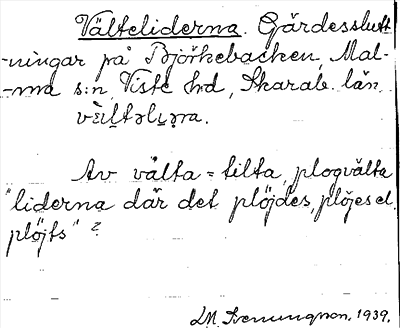 Välteliderna. Gärdesslutt-
-ningar på Björkebacken, Mal-
-ma s:n Viste hd, Skarab. län.
Av välta = tilta, plogvälta
"liderna där det plöjdes, plöjes el.
plöjts" ?
1939.